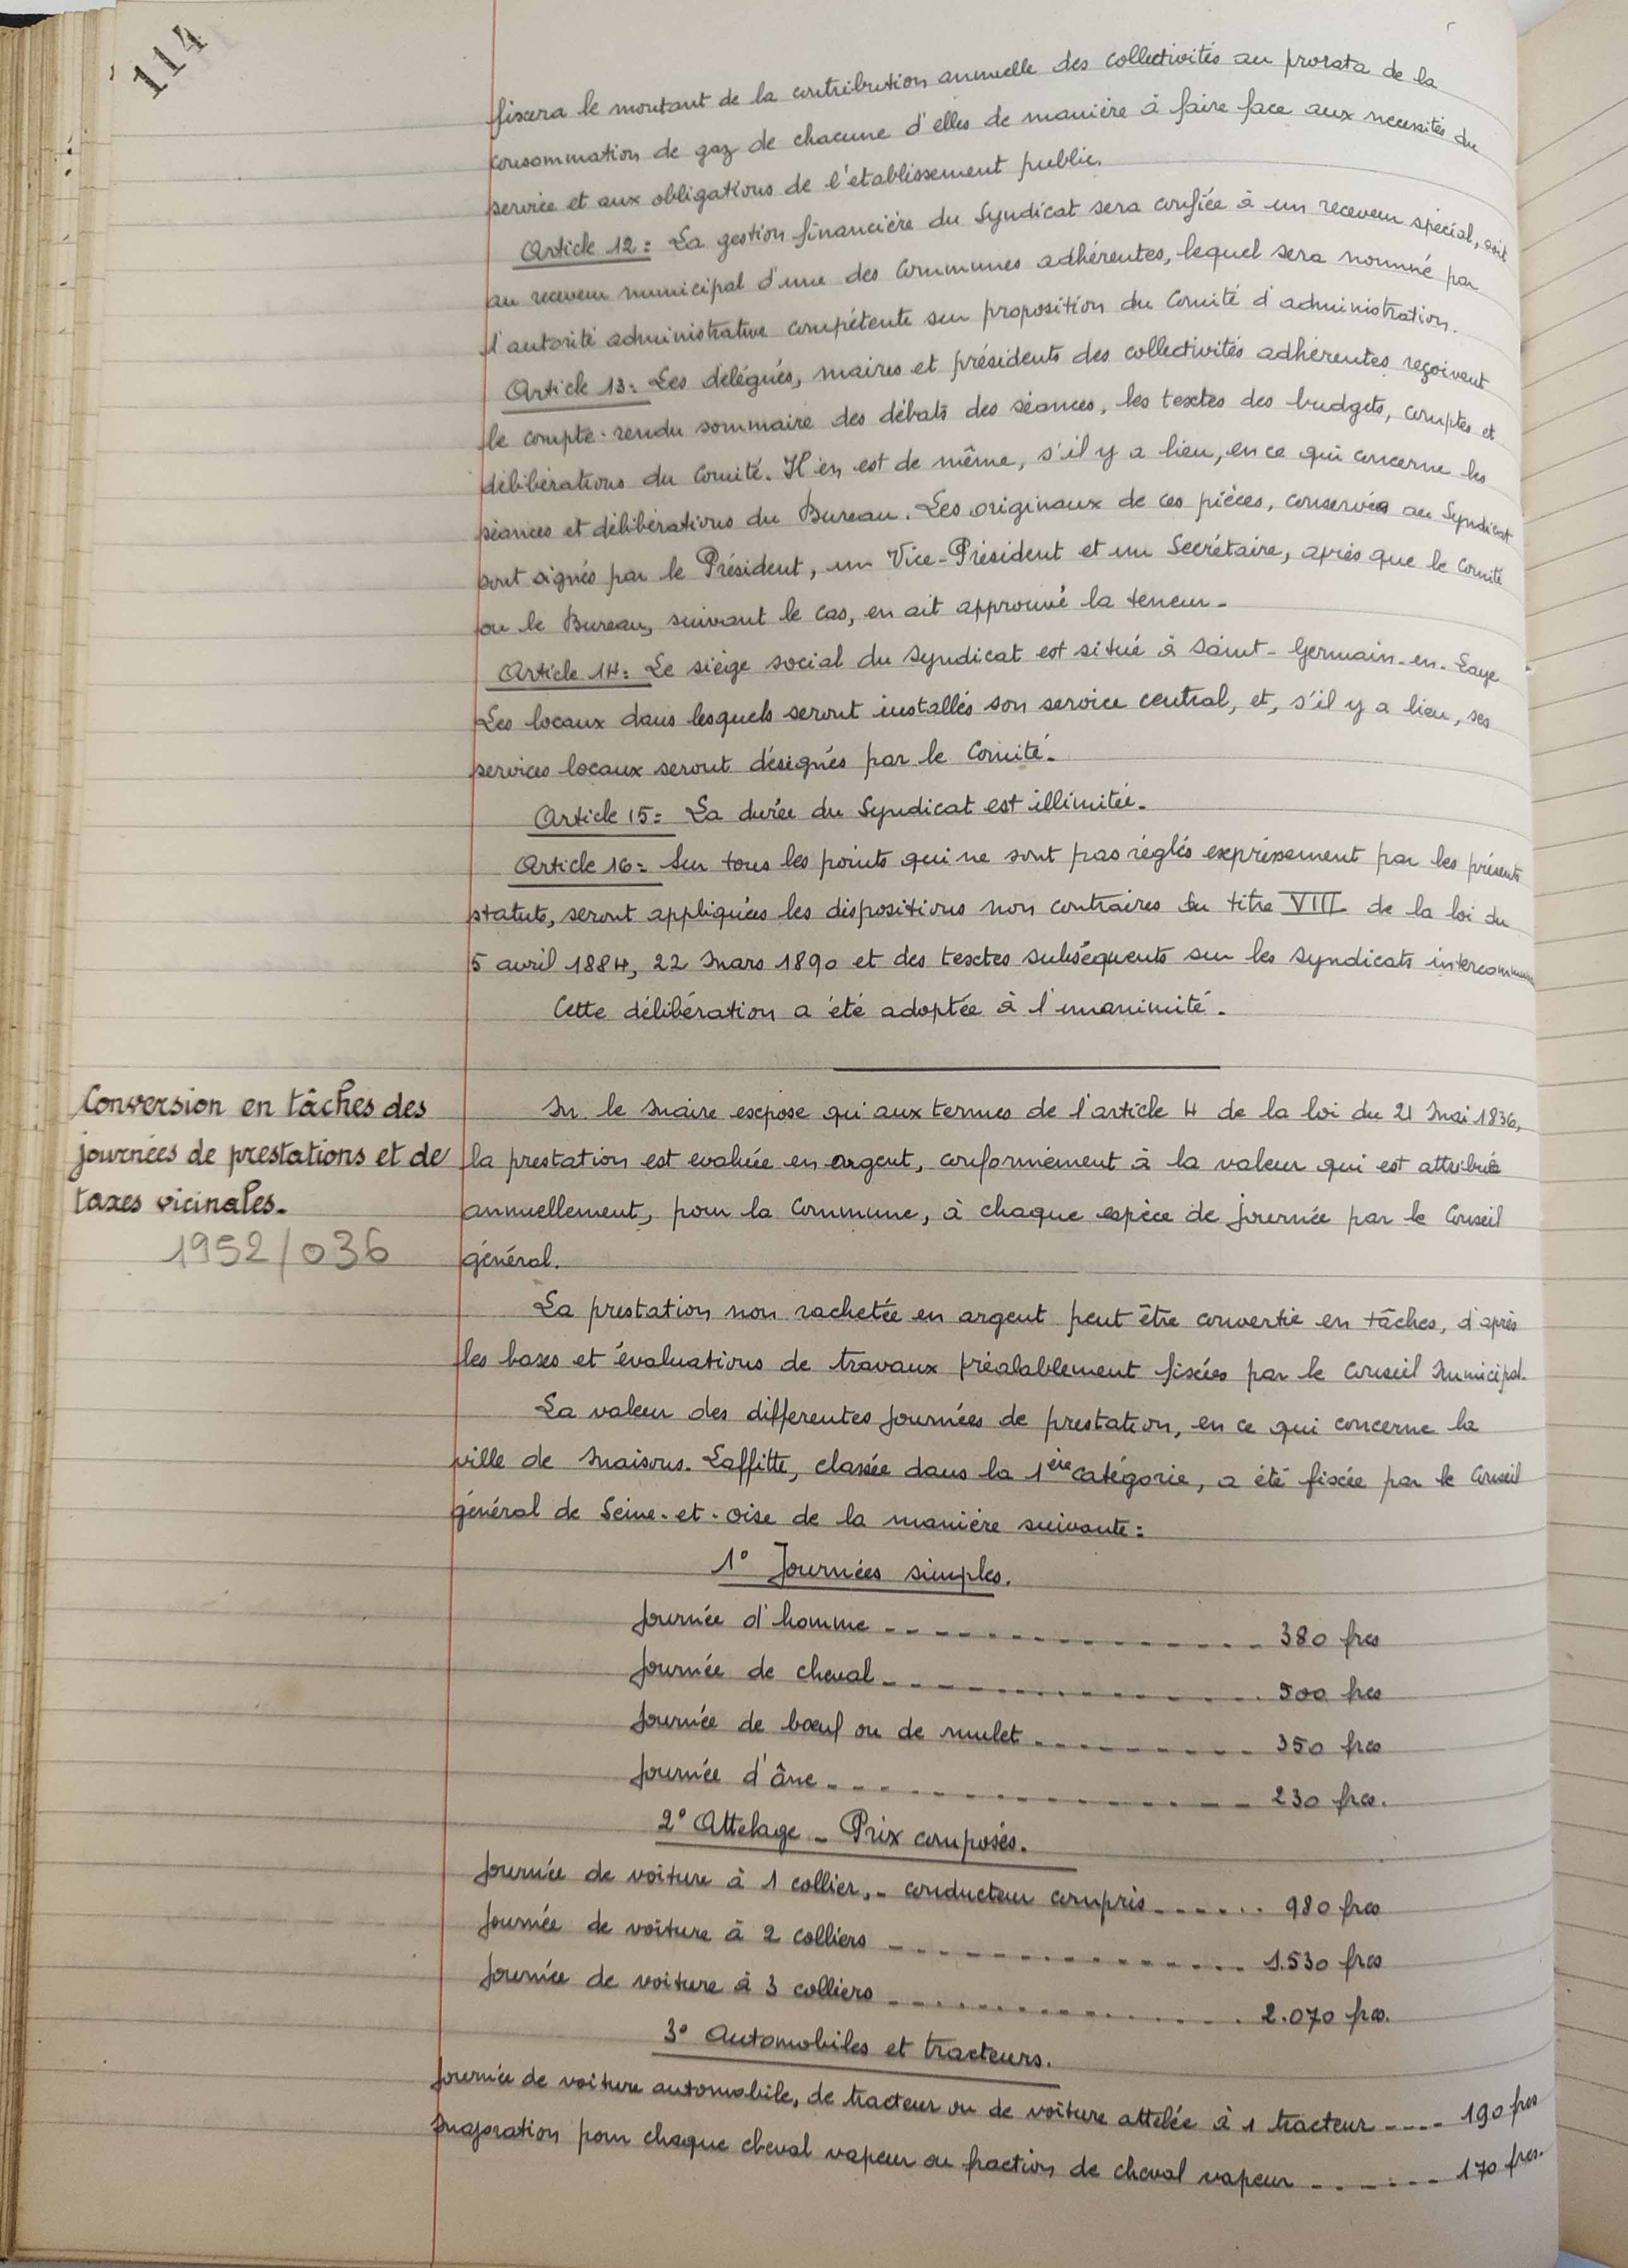 114
fixera le montant de la contribution annuelle des collectivités au prorata de la
consommation de gaz de chacune d'elles de manière à faire face aux necessités du
service et aux obligations de l'etablissement public.
Article 12: La gestion financière du Syndicat sera confiée à un receveur spécial, soit
au receveur municipal d'une des Communes adhérentes, lequel sera nommé par
l'autorité administrative compétente sur proposition du Comité d'administration.
Article 13: Les délégués, maires et présidents des collectivités adhérentes reçoivent
le compte-rendu sommaire des débats des séances, les textes des budgets, comptes et
délibérations du Comité. Il en est de même, s'il y a lieu, en ce qui concerne les
séances et délibérations du Bureau. Les originaux de ces pièces, conservés au Syndicat
sont signés par le Président, un Vice-Président et un Secrétaire, après que le Comité
ou le Bureau, suivant le cas, en ait approuvé la teneur.
Article 14: Le siège social du Syndicat est situé à Saint-Germain-en-Laye
Les locaux dans lesquels seront installés son service central, et, s'il y a lieu, ses
services locaux seront désignés par le Comité.
Article 15: La durée du Syndicat est illimitée.
Article 16: Sur tous les points qui ne sont pas réglés expressement par les présents
statuts, seront appliquées les dispositions non contraires du titre VIII de la loi du
5 avril 1884, 22 Mars 1890 et des textes subséquents sur les syndicats intercommunaux
Cette délibération a été adoptée à l'unanimité.
Conversion en tâches des
journées de prestations et de
taxes vicinales.
1952/036
M. le Maire expose qu'aux termes de l'article 4 de la loi du 21 Mai 1836,
la prestation est evaluée en argent, conformément à la valeur qui est attribuée
annuellement, pour la Commune, à chaque espèce de journée par le Conseil
général.
La prestation non rachetée en argent peut être convertie en tâches, d'après
les bases et évaluations de travaux préalablement fixées par le Conseil Municipal.
La valeur des differentes journées de prestation, en ce qui concerne la
ville de Maisons-Laffitte, classée dans la 1ère catégorie, a été fixée par le Conseil
général de Seine-et-Oise de la manière suivante:
1° Journées simples.
Journée d'homme 380 frcs
Journée de cheval 500 frcs
Journée de bœuf ou de mulet 350 frcs
Journée d'âne 230 frcs.
2° Attelage - Prix composés.
Journée de voiture à 1 collier, - conducteur compris 980 frcs
Journée de voiture à 2 colliers 1.530 frcs
Journée de voiture à 3 colliers 2.070 frcs.
3° Automobiles et tracteurs.
Journée de voiture automobile, de tracteur ou de voiture attelée à 1 tracteur 190 frcs
Majoration pour chaque cheval vapeur ou fraction de cheval vapeur 170 frcs.